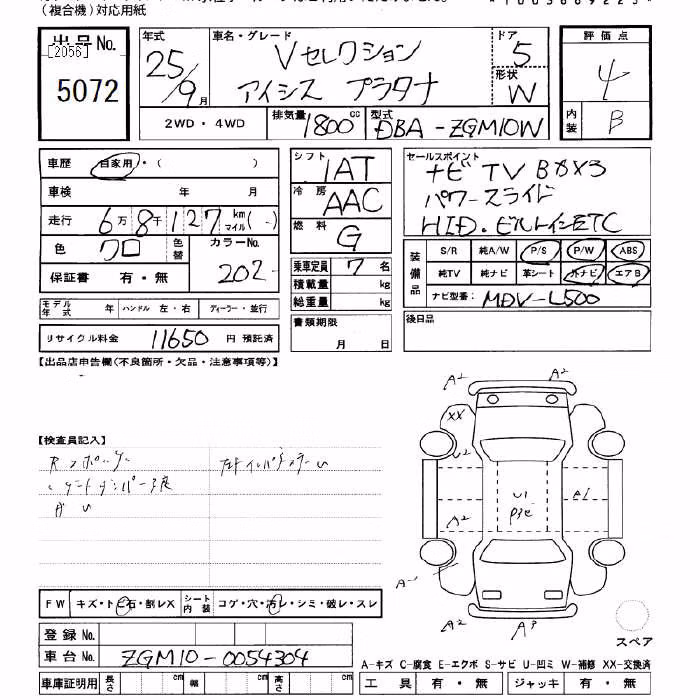 (複合機)対応用紙
出品No. [2056] 5072
年式 25/9月
車名・グレード Vセレクション アイシス プラタナ
ドア 5
形状 W
評価点 4
内装 B
2WD・4WD
排気量 1800cc
型式 DBA-ZGM10W
車歴 自家用・( )
車検 年 月
走行 6万8千127km マイル(-)
色 クロ 色替 カラーNo. 202
保証書 有・無
シフト IAT
冷房 AAC
燃料 G
乗車定員 7名
積載量 kg
総重量 kg
書類期限 月 日
セールスポイント ナビ TV Bカメラ
パワースライド
HID.ビルトインETC
装備品 S/R 純A/W P/S P/W ABS
純TV 純ナビ 革シート 外ナビ エアB
ナビ型番: MDV-L500
後日品
モデル年式 年 ハンドル 左・右 ディーラー・並行
リサイクル料金 11650円 預託済
【出品店申告欄(不良箇所・欠品・注意事項等)】
【検査員記入】
A2 A2
XX
U2
A2
U1
A1
A2 A3
FW キズ・トビ石・割レX シート内装 コゲ・穴・汚レ・シミ・破レ・スレ
登録No.
車台No. ZGM10-0054304
車庫証明用 長さ cm 幅 cm 高さ cm
スペア
A-キズ C-腐食 E-エクボ S-サビ U-凹ミ W-補修 XX-交換済
工具 有・無 ジャッキ 有・無